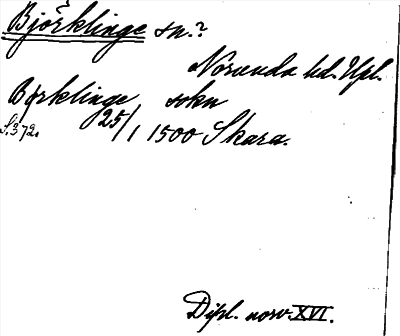 Björklinge sn.?
Norunda hd. Upl.
Børklinge sokn
S. 372. 25/1 1500 Skara.
Dipl. norv. XVI.